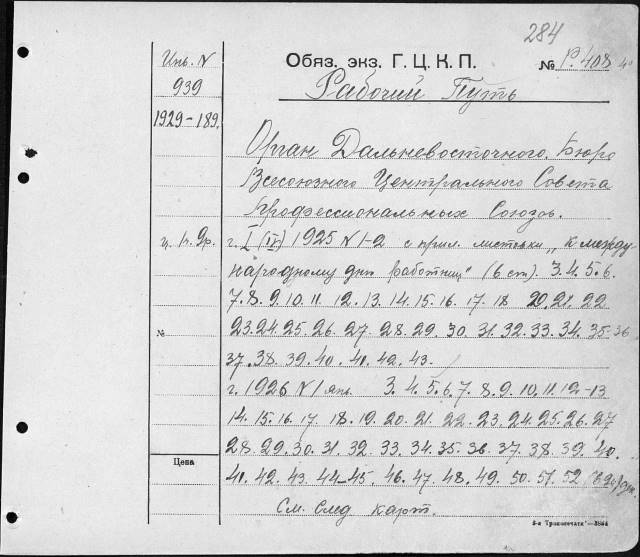 284
Инв. N
Обяз. экз. Г. Ц. К. П.
№ Р. 408
939
Рабочий Путь
1929-189.
Орган Дальневосточного Бюро
Всесоюзного Центрального Совета
Профессиональных Союзов.
г. I (IV) 1925 N 1-2 с прил. листовки „К между-
народному дню работниц" (6 ст). 3.4.5.6.
7.8.9.10.11. 12.13.14.15.16. 17.18 20.21.22
23.24.25.26. 27. 28.29. 30. 31.32.33.34. 35-36
№
37.38.39.40. 41.42.43.
г. 1926 N 1 янв. 3.4.5.6.7.8.9.10.11.12-13
14.15.16.17. 18.19.20.21. 22. 23.24.25.26.27
28.29.30. 31. 32. 33. 34.35. 36. 37. 38. 39. 40.
Цена
41. 42. 43. 44-45. 46.47. 48. 49. 50. 51. 52
См. след карт.
5-я Транспечати—3844